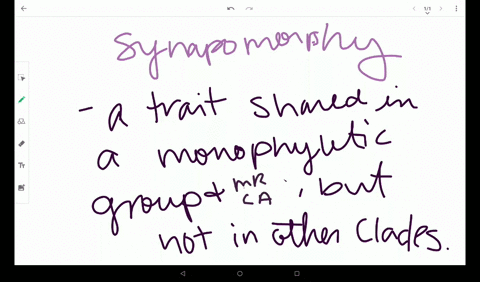 1/1
Synapomorphy
- a trait shared in
a monophyletic
group + MR CA, but
not in other Clades.